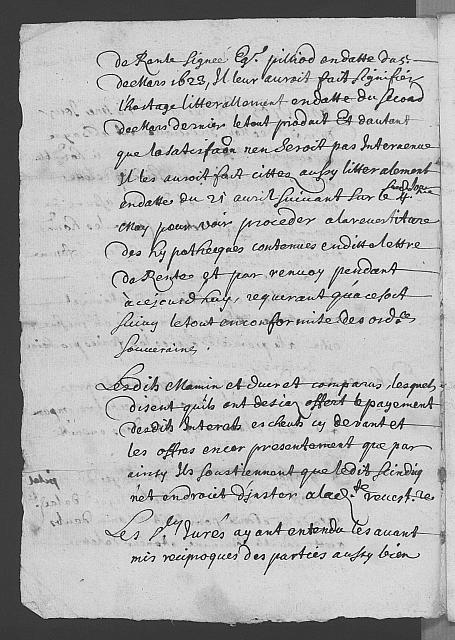 de Rente signée Eg. pilliod en datte du 5e
de Mars 1623, Il leur auroit fait signifier
l'hostage litterallement en datte du second
de Mars dernier le tout produit Et dautant
que la satisfaōn nen seroit pas Intervenue
Il les auroit fait cittes aussy litteralement
en datte du 21 avril suivant sur le 4e
May pour voir proceder a la revestiture
des hypothecques contenues en ditte lettre
de Rente et par renvoy pendant
à cejourdhuy, requerant qu'à ce soit
suivy le tout en conformité des ord.ces
souveraines.
Lesdits Mamin et ducret comparus, lesquels
disent qu'ils ont desja offert le payement
desdits Interets escheuts cy devant et
les offres encor presentement que par
ainsy Ils soustiennent que ledit Scindiq
n'et endroit d'inster a la d.te revest.re
Les Jurés ayant entendu les avant
mis reciproques des parties aussy bien